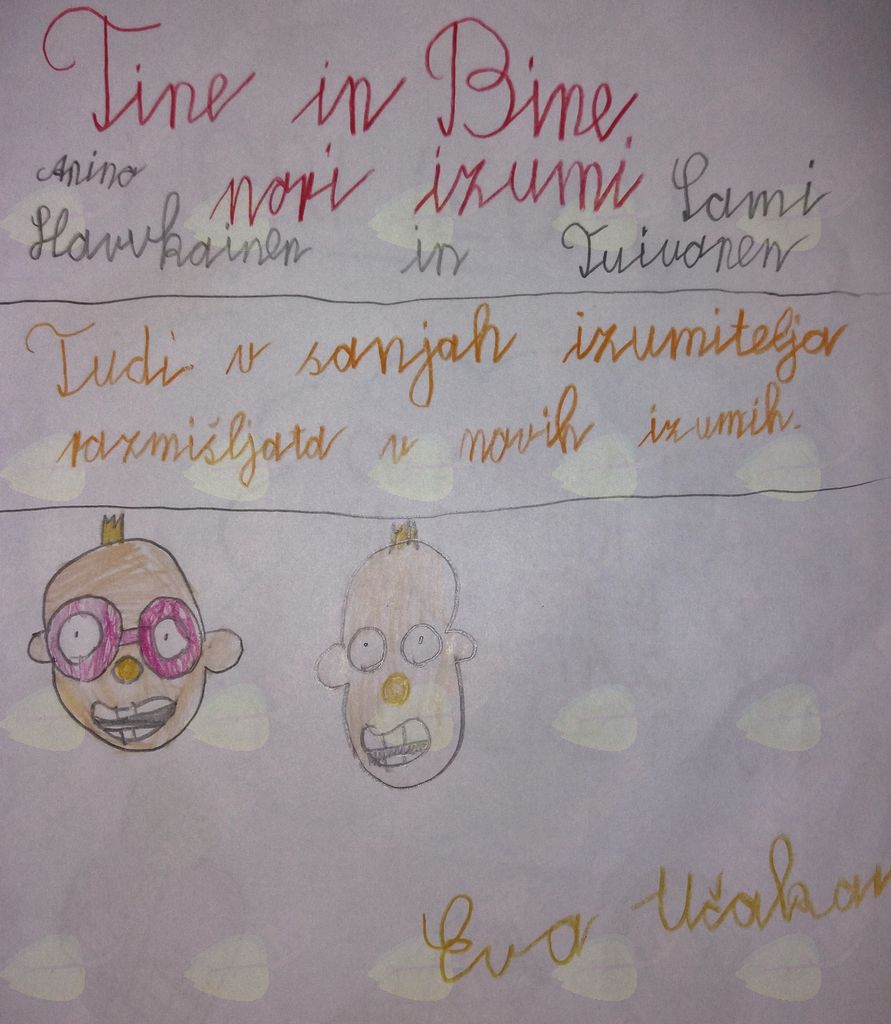 Tine in Bine,
nori izumi
Anino Sami
Havukainen in Toivonen
Tudi v sanjah izumitelja
razmišljata v novih izumih.
Eva Učakar